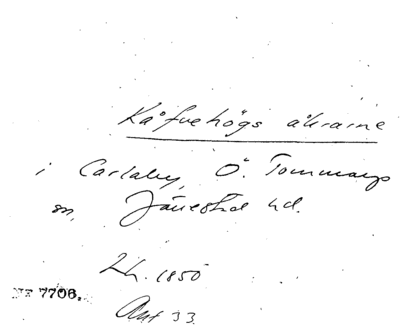 Kåfvehögs åkrarne
i Carlaby, Ö. Tommarps
sn, Järrestad hd.
Lh. 1850
NR 7706.
Akt 33